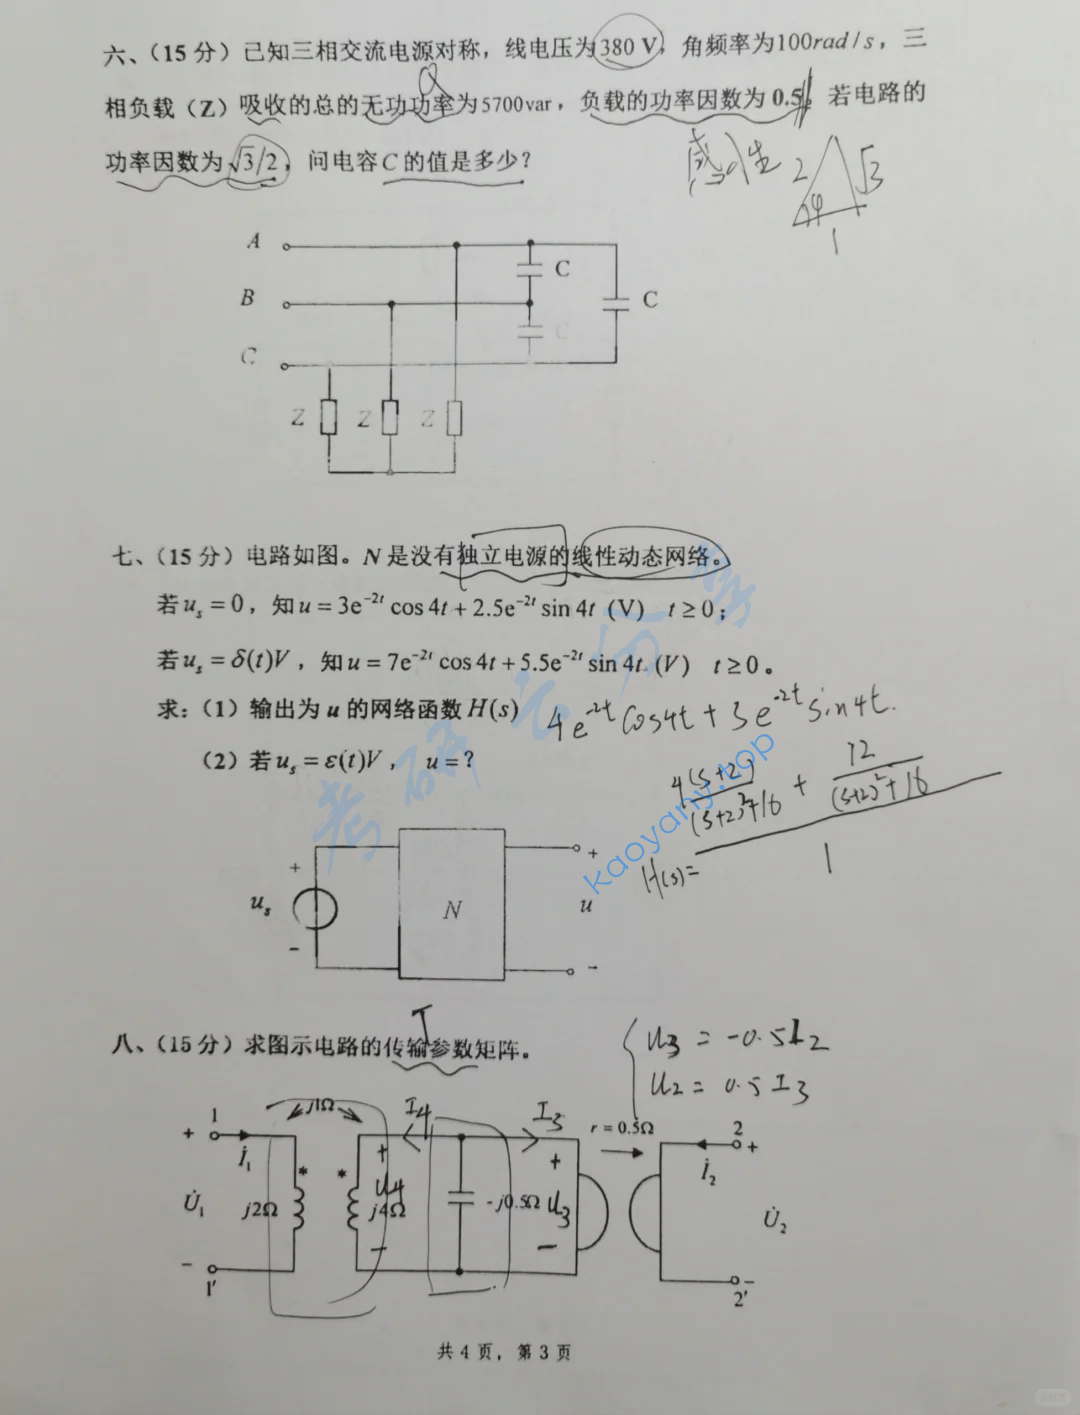 六、（15 分）已知三相交流电源对称，线电压为 380 V，角频率为100rad/s，三
相负载（Z）吸收的总的无功功率为5700var，负载的功率因数为 0.5，若电路的
Q
功率因数为 √3/2，问电容C的值是多少?
感性
2 √3
φ
1
A
C
B
C
C
C
Z Z Z
七、（15 分）电路如图。N 是没有独立电源的线性动态网络。
若 us = 0，知 u = 3e^-2t cos 4t + 2.5e^-2t sin 4t (V) t ≥ 0；
若 us = δ(t)V，知 u = 7e^-2t cos 4t + 5.5e^-2t sin 4t. (V) t ≥ 0。
求：（1）输出为 u 的网络函数 H(s)
4e^-2t cos4t + 3e^-2t sin4t.
（2）若 us = ε(t)V， u = ?
H(s)= 4(s+2)/((s+2)²+16) + 12/((s+2)²+16)
1
考研云分享
kaoyany.top
+
us
-
N
+
u
-
八、（15 分）求图示电路的传输参数矩阵。
T
U3 = -0.5I2
U2 = 0.5 I3
1 j1Ω I4 I3 r = 0.5Ω 2
+ İ1 * * + + İ2 +
U̇1 j2Ω U4 j4Ω -j0.5Ω U3 U̇2
- - - -
1′ 2′
共 4 页，第 3 页